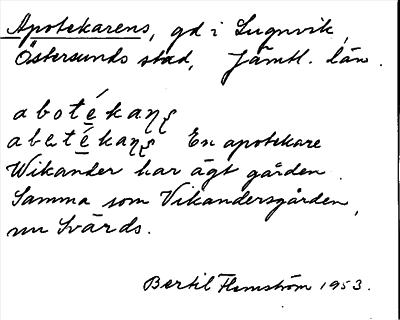 Apotekarens, gd i Lugnvik,
Östersunds stad, Jämtl. län.
abotékaɳʂ
abɯtékaɳʂ En apotekare
Wikander har ägt gården.
Samma som Vikandersgården,
nu Svärds.
Bertil Flemström 1953.